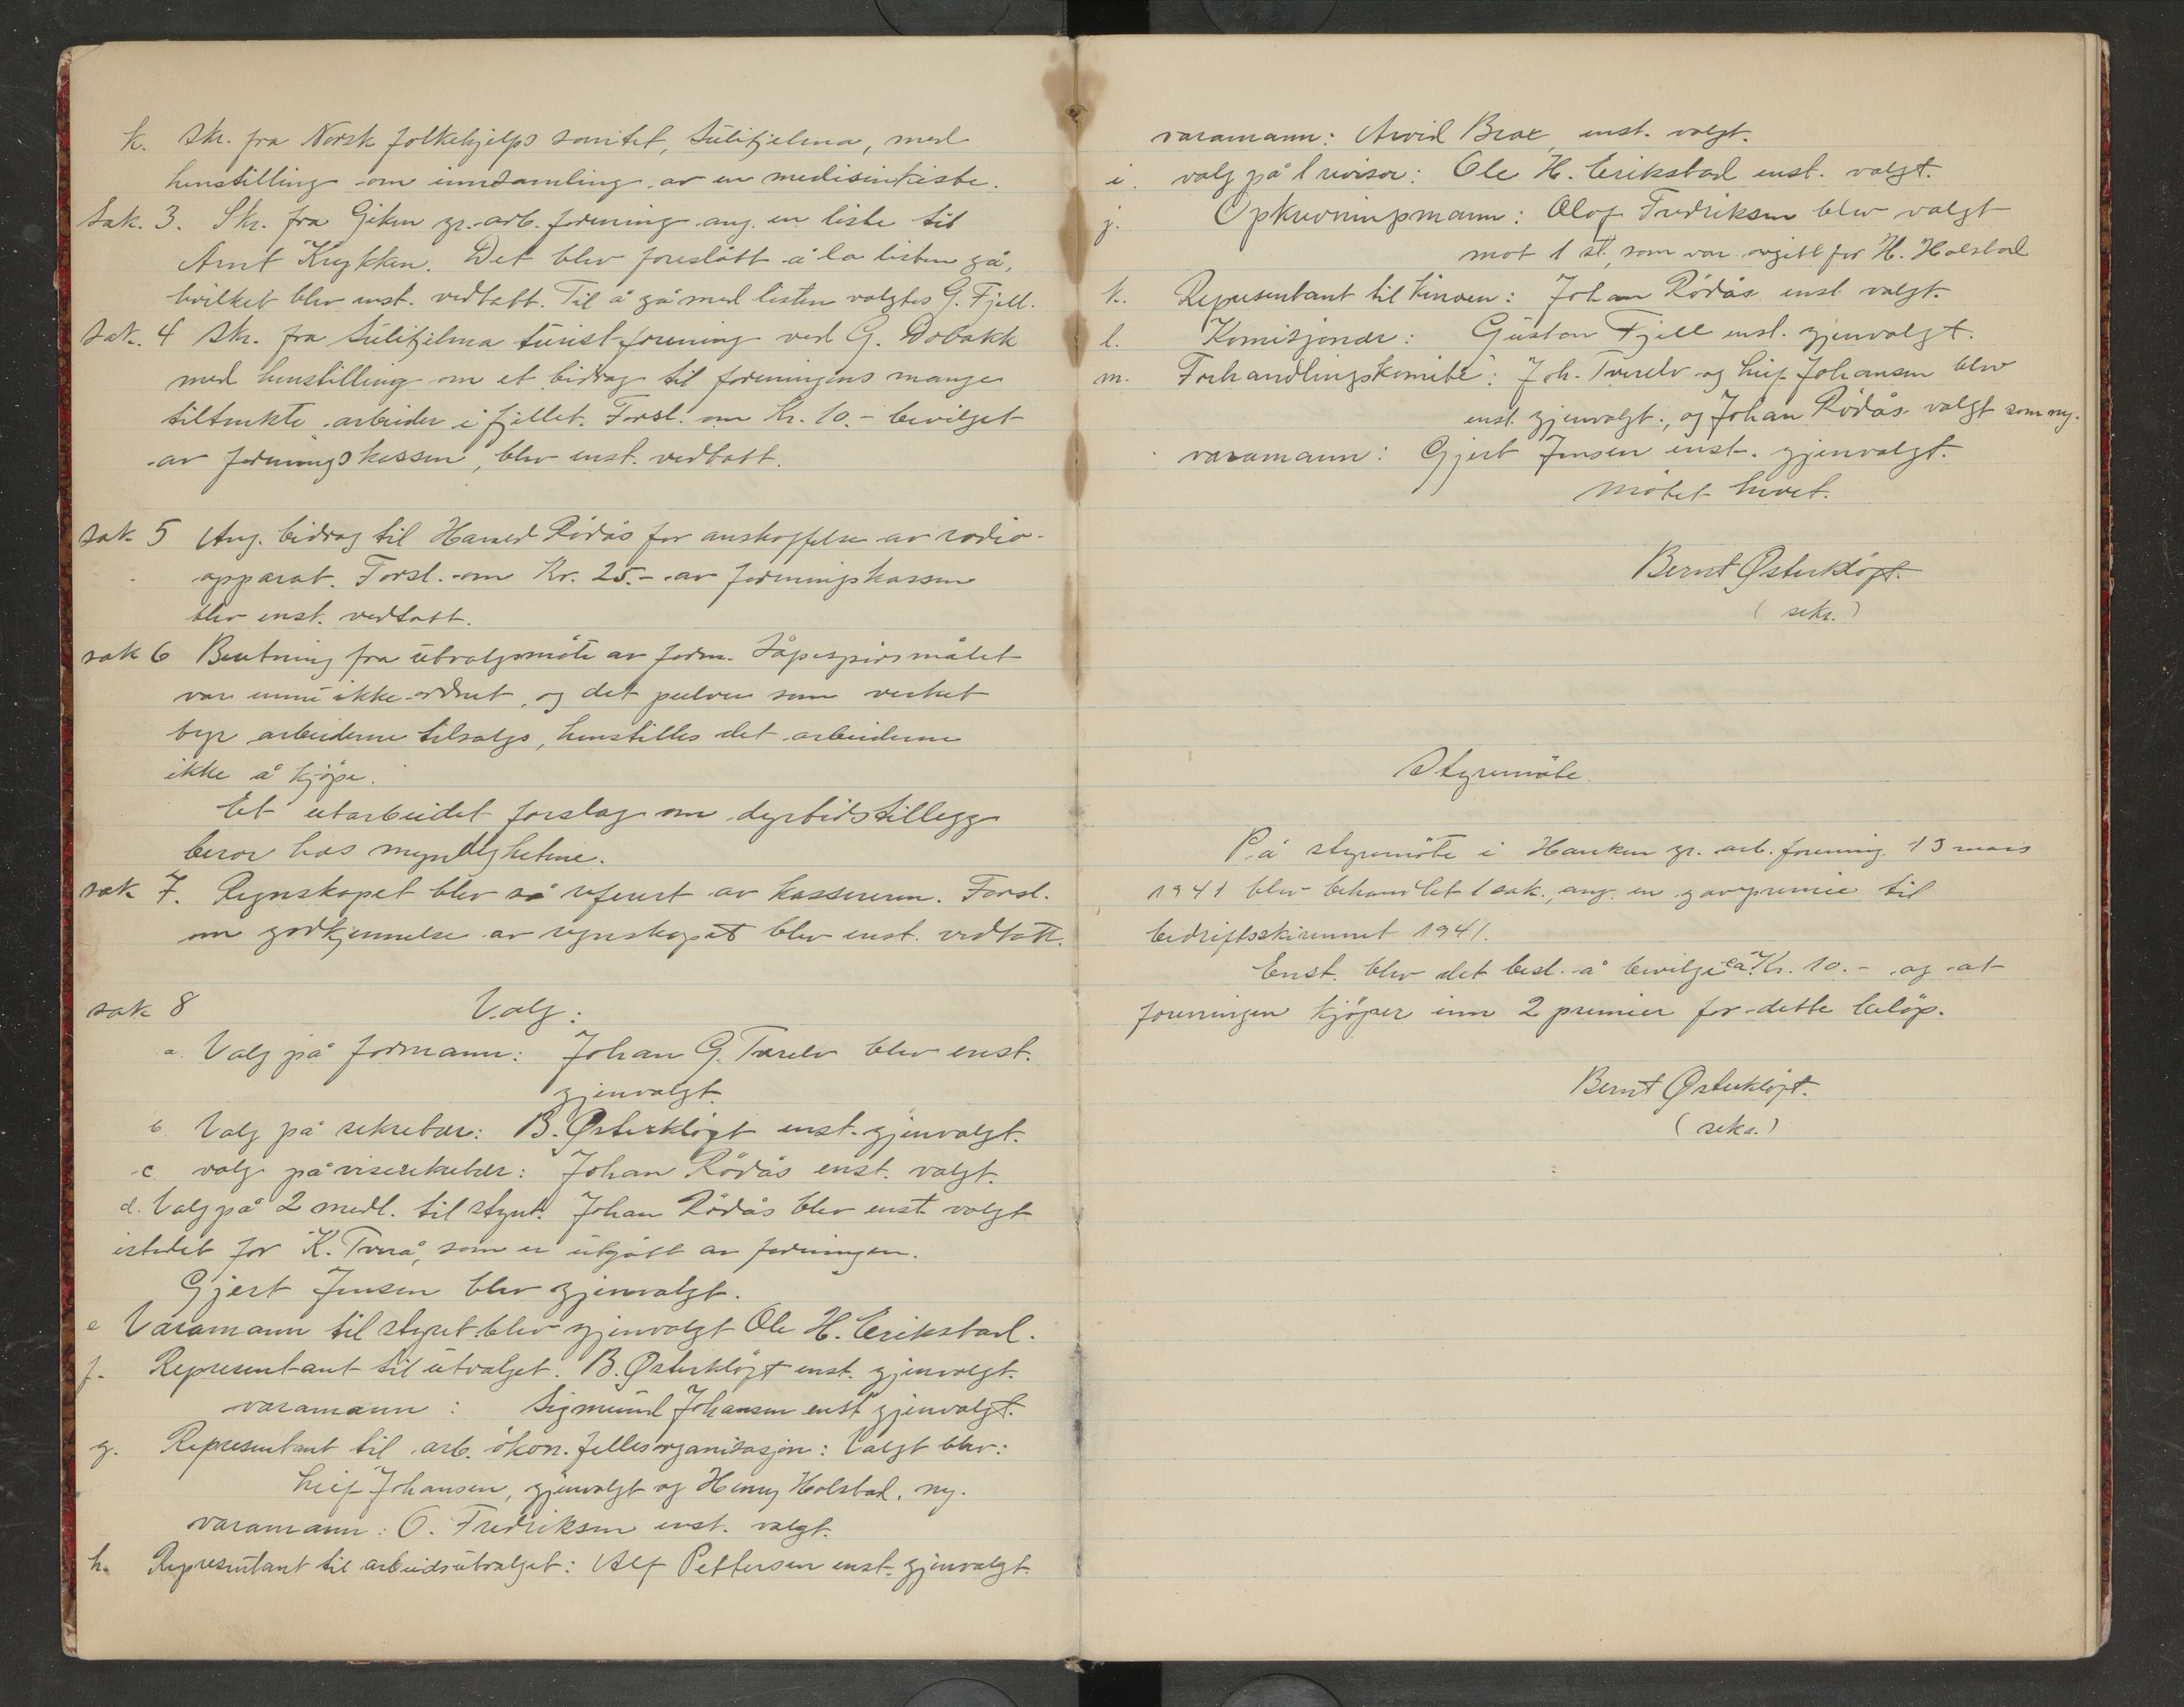 k. Skr. fra Norsk folkehjelps sanitet, Sulitjelma, med
henstilling om inndamling av en medisinkiste.
Sak. 3. Skr. fra Giken gr.-arb. forening ang. en liste til
Arnt Krykken. Det blev foreslått å la listen gå,
hvilket blev enst. vedtatt. Til å gå med listen valgtes G. Fjell.
Sak. 4 Skr. fra Sulitjelma turistforening ved G. Dobakk
med henstilling om et bidrag til foreningens mange
tiltenkte arbeider i fjellet. Forsl. om Kr. 10.- bevilget
av foreningskassen, blev enst. vedtatt.
Sak 5 Ang. bidrag til Harald Rödås for anskaffelse av radio-
apparat. Forsl. om Kr. 25.- av foreningskassen
blev enst. vedtatt.
sak 6 Beretning fra utvalgsmöte av form. Såpespörsmålet
var ennu ikke ordnet, og det pulver som verket
byr arbeiderne tilsalgs, henstilles det arbeiderne
ikke å kjöpe.
Et utarbeidet forslag om dyrtidstillegg
beror hos myndighetene.
sak 7. Regnskapet blev så referert av kassereren. Forsl.
om godkjennelse av regnskapet blev enst. vedtatt.
sak 8 Valg:
a. Valg på formann: Johan G. Tverelv blev enst.
gjenvalgt.
b. Valg på sekretær: B. Østerkløft enst. gjenvalgt.
c valg på visesekretær: Johan Rödås enst. valgt.
d. Valg på 2 medl. til styret. Johan Rödås blev enst valgt
istedet for K. Tverå, som er utgått av foreningen.
Gjert Jensen blev gjenvalgt.
e Varamann til styret blev gjenvalgt Ole H. Erikstad.
f. Representant til utvalget. B. Østerklöft enst. gjenvalgt.
varamann: Sigmund Johansen enst gjenvalgt.
g. Representant til arb. ökon. fellesorganisasjon: Valgt blev:
Leif Johansen, gjenvalgt og Henry Holstad, ny.
varamann: O. Fredriksen enst. valgt.
h. Representant til arbeidsutvalget: Alf Pettersen enst. gjenvalgt.
varamann: Arvid Brox enst. valgt.
i. valg på 1 revisor: Ole H. Erikstad enst. valgt.
j. Opkrevningsmann: Olof Fredriksen blev valgt
mot 1 st., som var avgitt for H. Holstad
k. Representant til : Johan Rödås enst valgt.
l. Komisjonær: Gustav Fjell enst. gjenvalgt.
m. Forhandlingskomité: Joh. Tverelv og Leif Johansen blev
enst. gjenvalgt., og Johan Rödås valgt som ny.
varamann: Gjert Jensen enst. gjenvalgt.
Mötet hevet.
Bernt Østerklöft.
(sekr.)
Styremöte.
På styremöte i Hanken gr. arb. forening 13 mars
1941 blev behandlet 1 sak., ang. en gavepremie til
bedriftsskirennet 1941.
Enst. blev det besl. å bevilge ca. Kr. 10.- og at
foreningen kjöper inn 2 premier for dette belöp.
Bernt Østerklöft.
(sekr.)